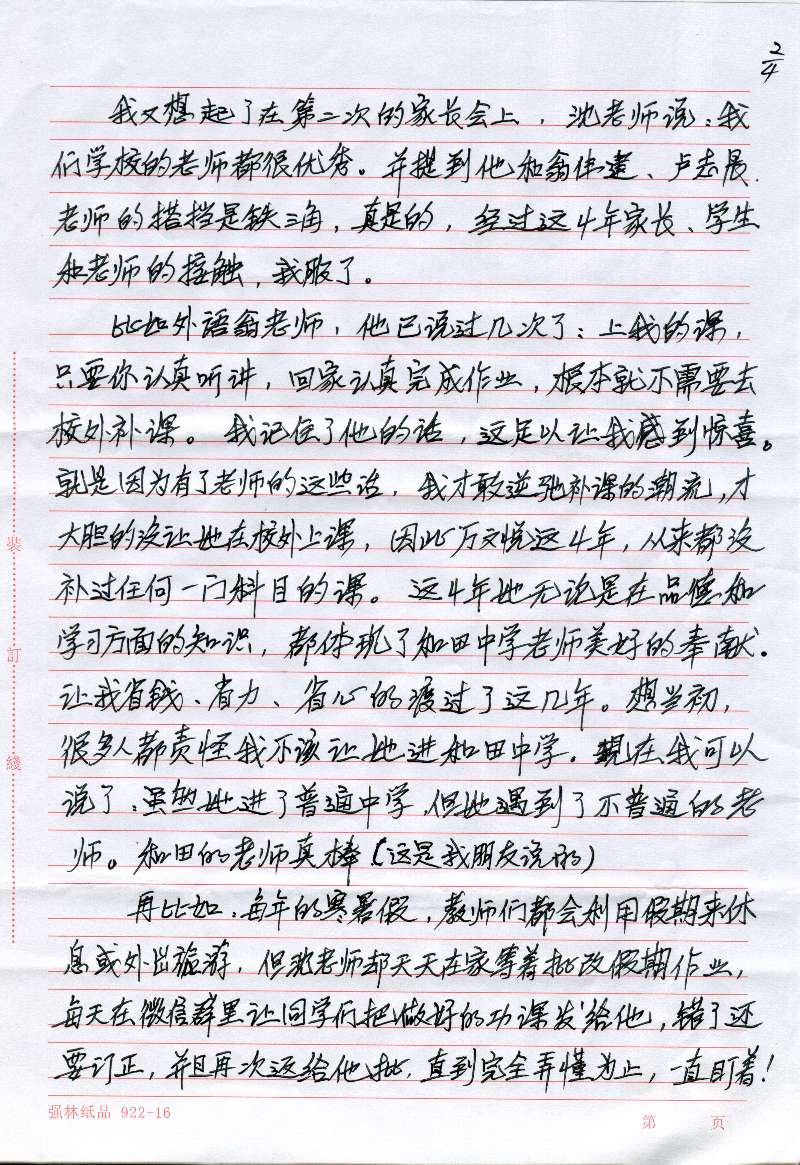 2/4
我又想起了在第二次的家长会上，沈老师说：我
们学校的老师都很优秀。并提到他和翁伟建、卢志晨
老师的搭挡是铁三角，真是的，经过这4年家长、学生
和老师的接触，我服了。
比如外语翁老师，他已说过几次了：上我的课，
只要你认真听讲，回家认真完成作业，根本就不需要去
校外补课。我记住了他的话，这足以让我感到惊喜。
就是因为有了老师的这些话，我才敢逆驰补课的潮流，才
大胆的没让她在校外上课，因此万文悦这4年，从来都没
补过任何一门科目的课。这4年她无论是在品德和
学习方面的知识，都体现了和田中学老师美好的奉献.
让我省钱、省力、省心的渡过了这几年。想当初，
很多人都责怪我不该让她进和田中学。现在我可以
说了：虽然她进了普通中学，但她遇到了不普通的老
师。和田的老师真棒（这是我朋友说的）
再比如：每年的寒暑假，教师们都会利用假期来休
息或外出旅游，但沈老师却天天在家等着批改假期作业，
每天在微信群里让同学们把做好的功课发给他，错了还
要订正，并且再次返给他批，直到完全弄懂为止，一直盯着！
装
订
线
强林纸品 922-16
第 页